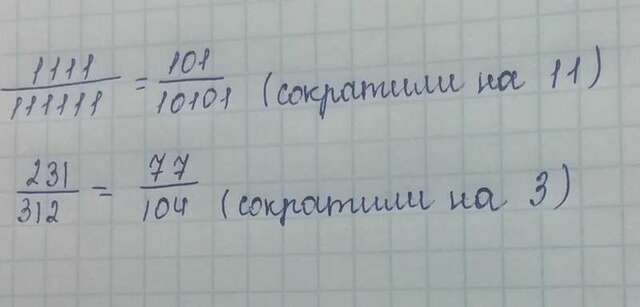 1111/111111 = 101/10101 (сократили на 11)
231/312 = 77/104 (сократили на 3)